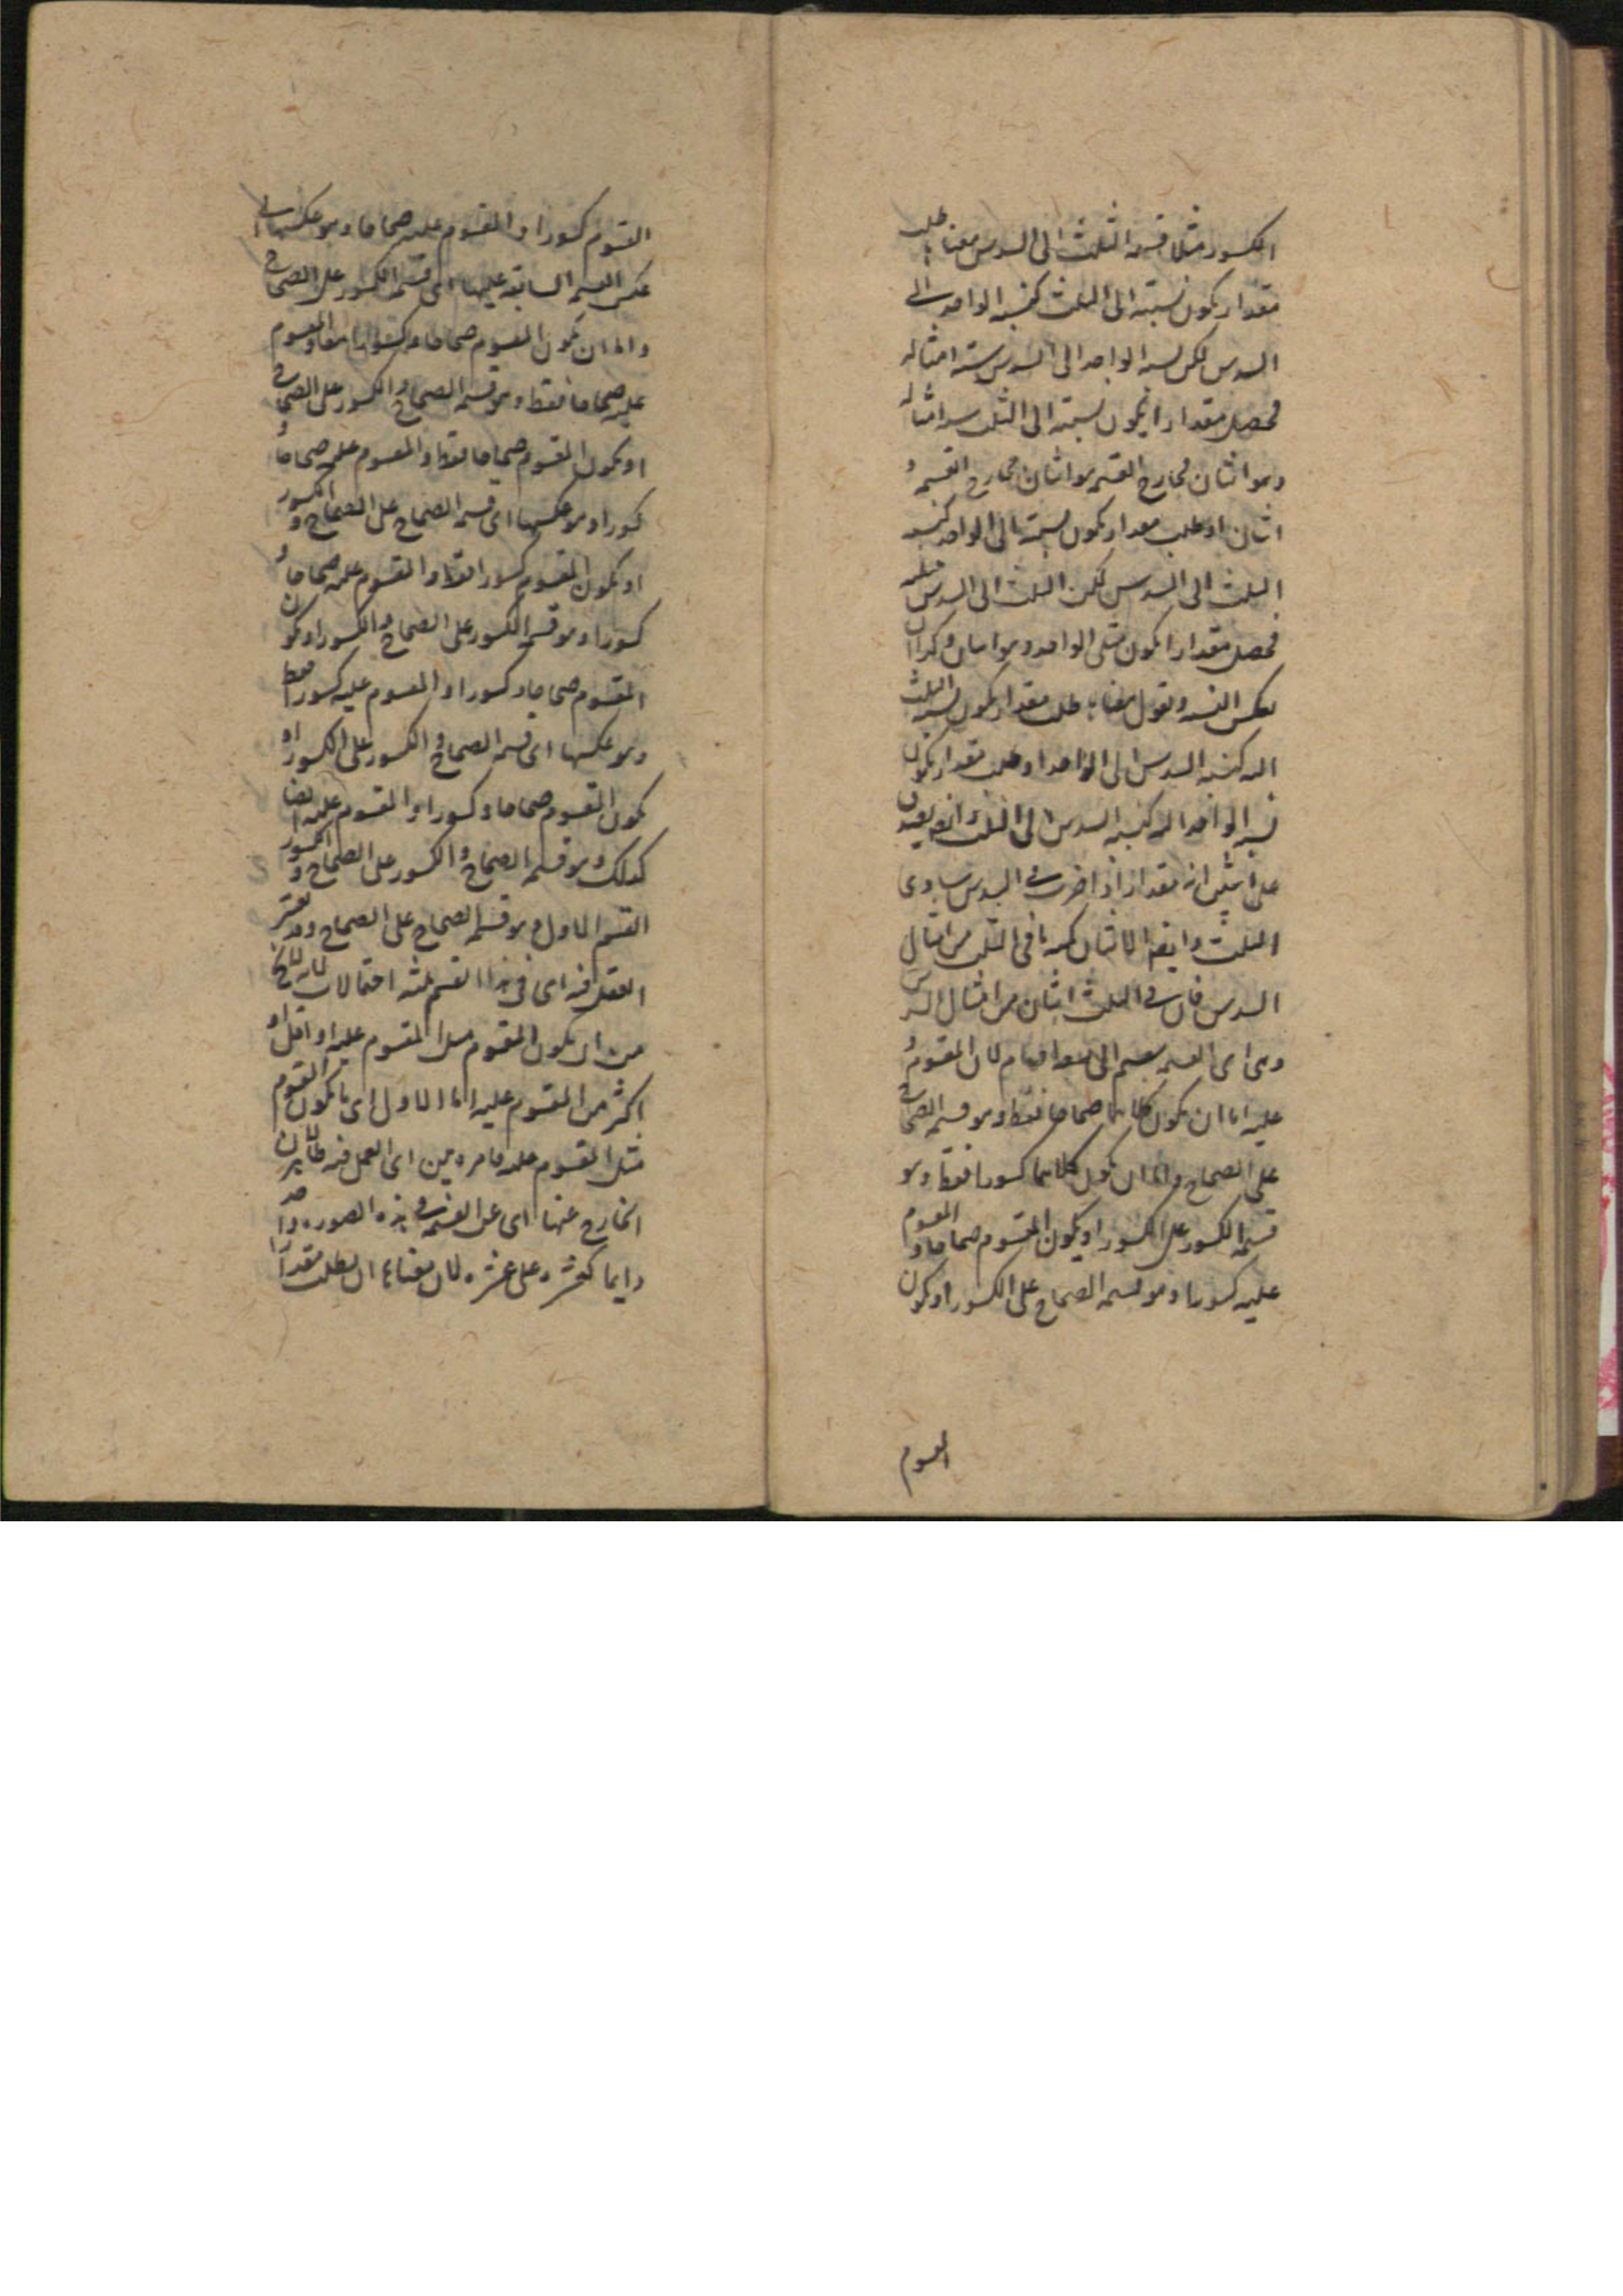 الكسور مثلا قسمة الثلث الى السدس معناه طلب
مقدار يكون نسبته الى الثلث كنسبة الواحد الى
السدس لكن نسبة الواحد الى السدس ستة امثاله
فحصل مقدار ا يكون نسبته الى الثلث ستة امثاله
وهو اثنان فخارج القسمة هو اثنان فخارج القسمة
اثنان او طلب مقدار يكون نسبته الى الواحد كنسبة
الثلث الى السدس لكن الثلث الى السدس مثليه
فحصل مقدار ا يكون مثلي الواحد وهو اثنان وكذا ان
تعكس النسبة وتقول معناه طلب مقدار يكون نسبة الثلث
اليه كنسبة السدس الى الواحد او طلب مقدار يكون
نسبة الواحد اليه كنسبة السدس الى الثلث وايضا يصدق
على اثنين انه مقدار اذا ضرب في السدس يساوى
الثلث وايضا الاثنان كعدة ما في الثلث من امثال
السدس فان في الثلث اثنان من امثال السدس
وهى اى القسمة ينقسم الى تسعة اقسام لان المقسوم و
عليه اما ان يكون كلاهما صحاحا فقط وهو قسمة الصحاح
على الصحاح واما ان يكون كلاهما كسورا فقط وهو
قسمة الكسور على الكسور او يكون المقسوم صحاحا و المقسوم
عليه كسورا وهو قسمة الصحاح على الكسور او يكون
المقسوم
المقسوم كسورا و المقسوم عليه صحاحا وهو عكسها اى
عكس القسمة السابقة عليها اى قسمة الكسور على الصحاح
واما ان يكون المقسوم صحاحا وكسورا معا و المقسوم
عليه صحاحا فقط وهو قسمة الصحاح و الكسور على الصحاح
او يكون المقسوم صحاحا فقط و المقسوم عليه صحاحا و
كسورا وهو عكسها اى قسمة الصحاح على الصحاح و الكسور
او يكون المقسوم كسورا فقط و المقسوم عليه صحاحا و
كسورا وهو قسمة الكسور على الصحاح و الكسور او يكون
المقسوم صحاحا وكسورا و المقسوم عليه كسورا فقط
وهو عكسها اى قسمة الصحاح و الكسور على الكسور او
يكون المقسوم صحاحا وكسورا و المقسوم عليه ايضا
كذلك وهو قسمة الصحاح و الكسور على الصحاح و الكسور
القسم الاول وهو قسمة الصحاح على الصحاح وقد يعتبر
العقل فيه اى في هذا القسم ثلثة احتمالات لانه لا يخ
من ان يكون المقسوم مثل المقسوم عليه او اقل او
اكثر من المقسوم عليه اما الاول اى ما يكون المقسوم
مثل المقسوم عليه فامره بين اى العمل فيه ظاهر لان
الخارج عنها اى عن القسمة في هذه الصورة واحد
دايما كعشرة على عشرة لان معناه ان يطلب مقدارا